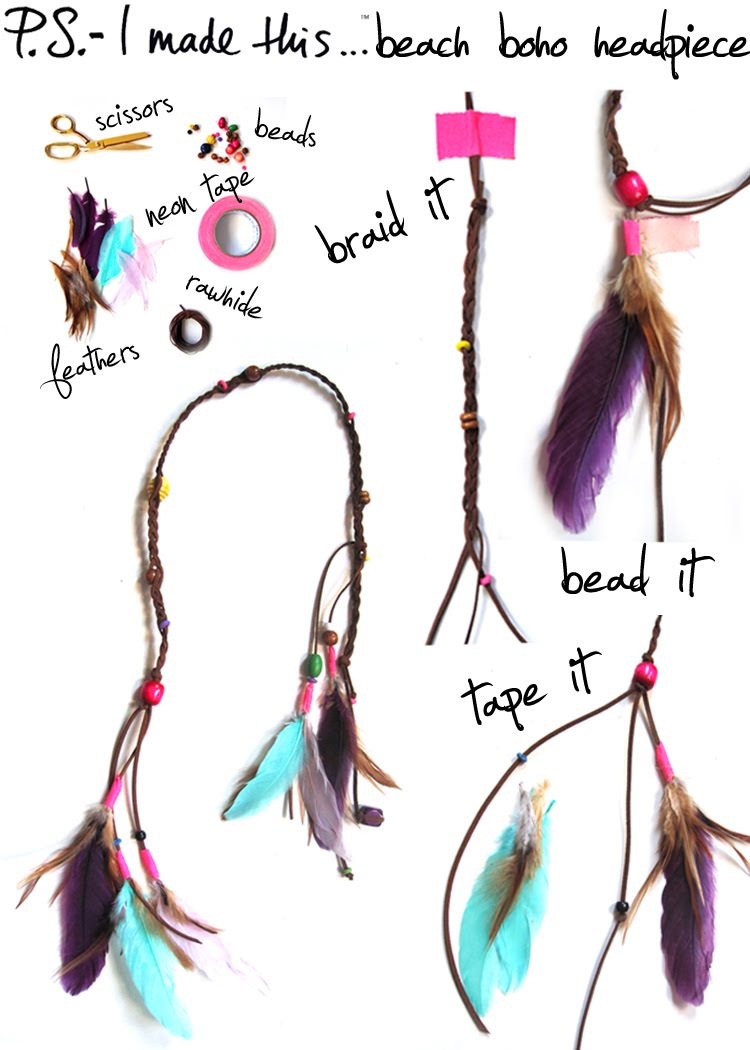 P.S.- I made this...™ beach boho headpiece
scissors
beads
neon tape
rawhide
feathers
braid it
bead it
tape it